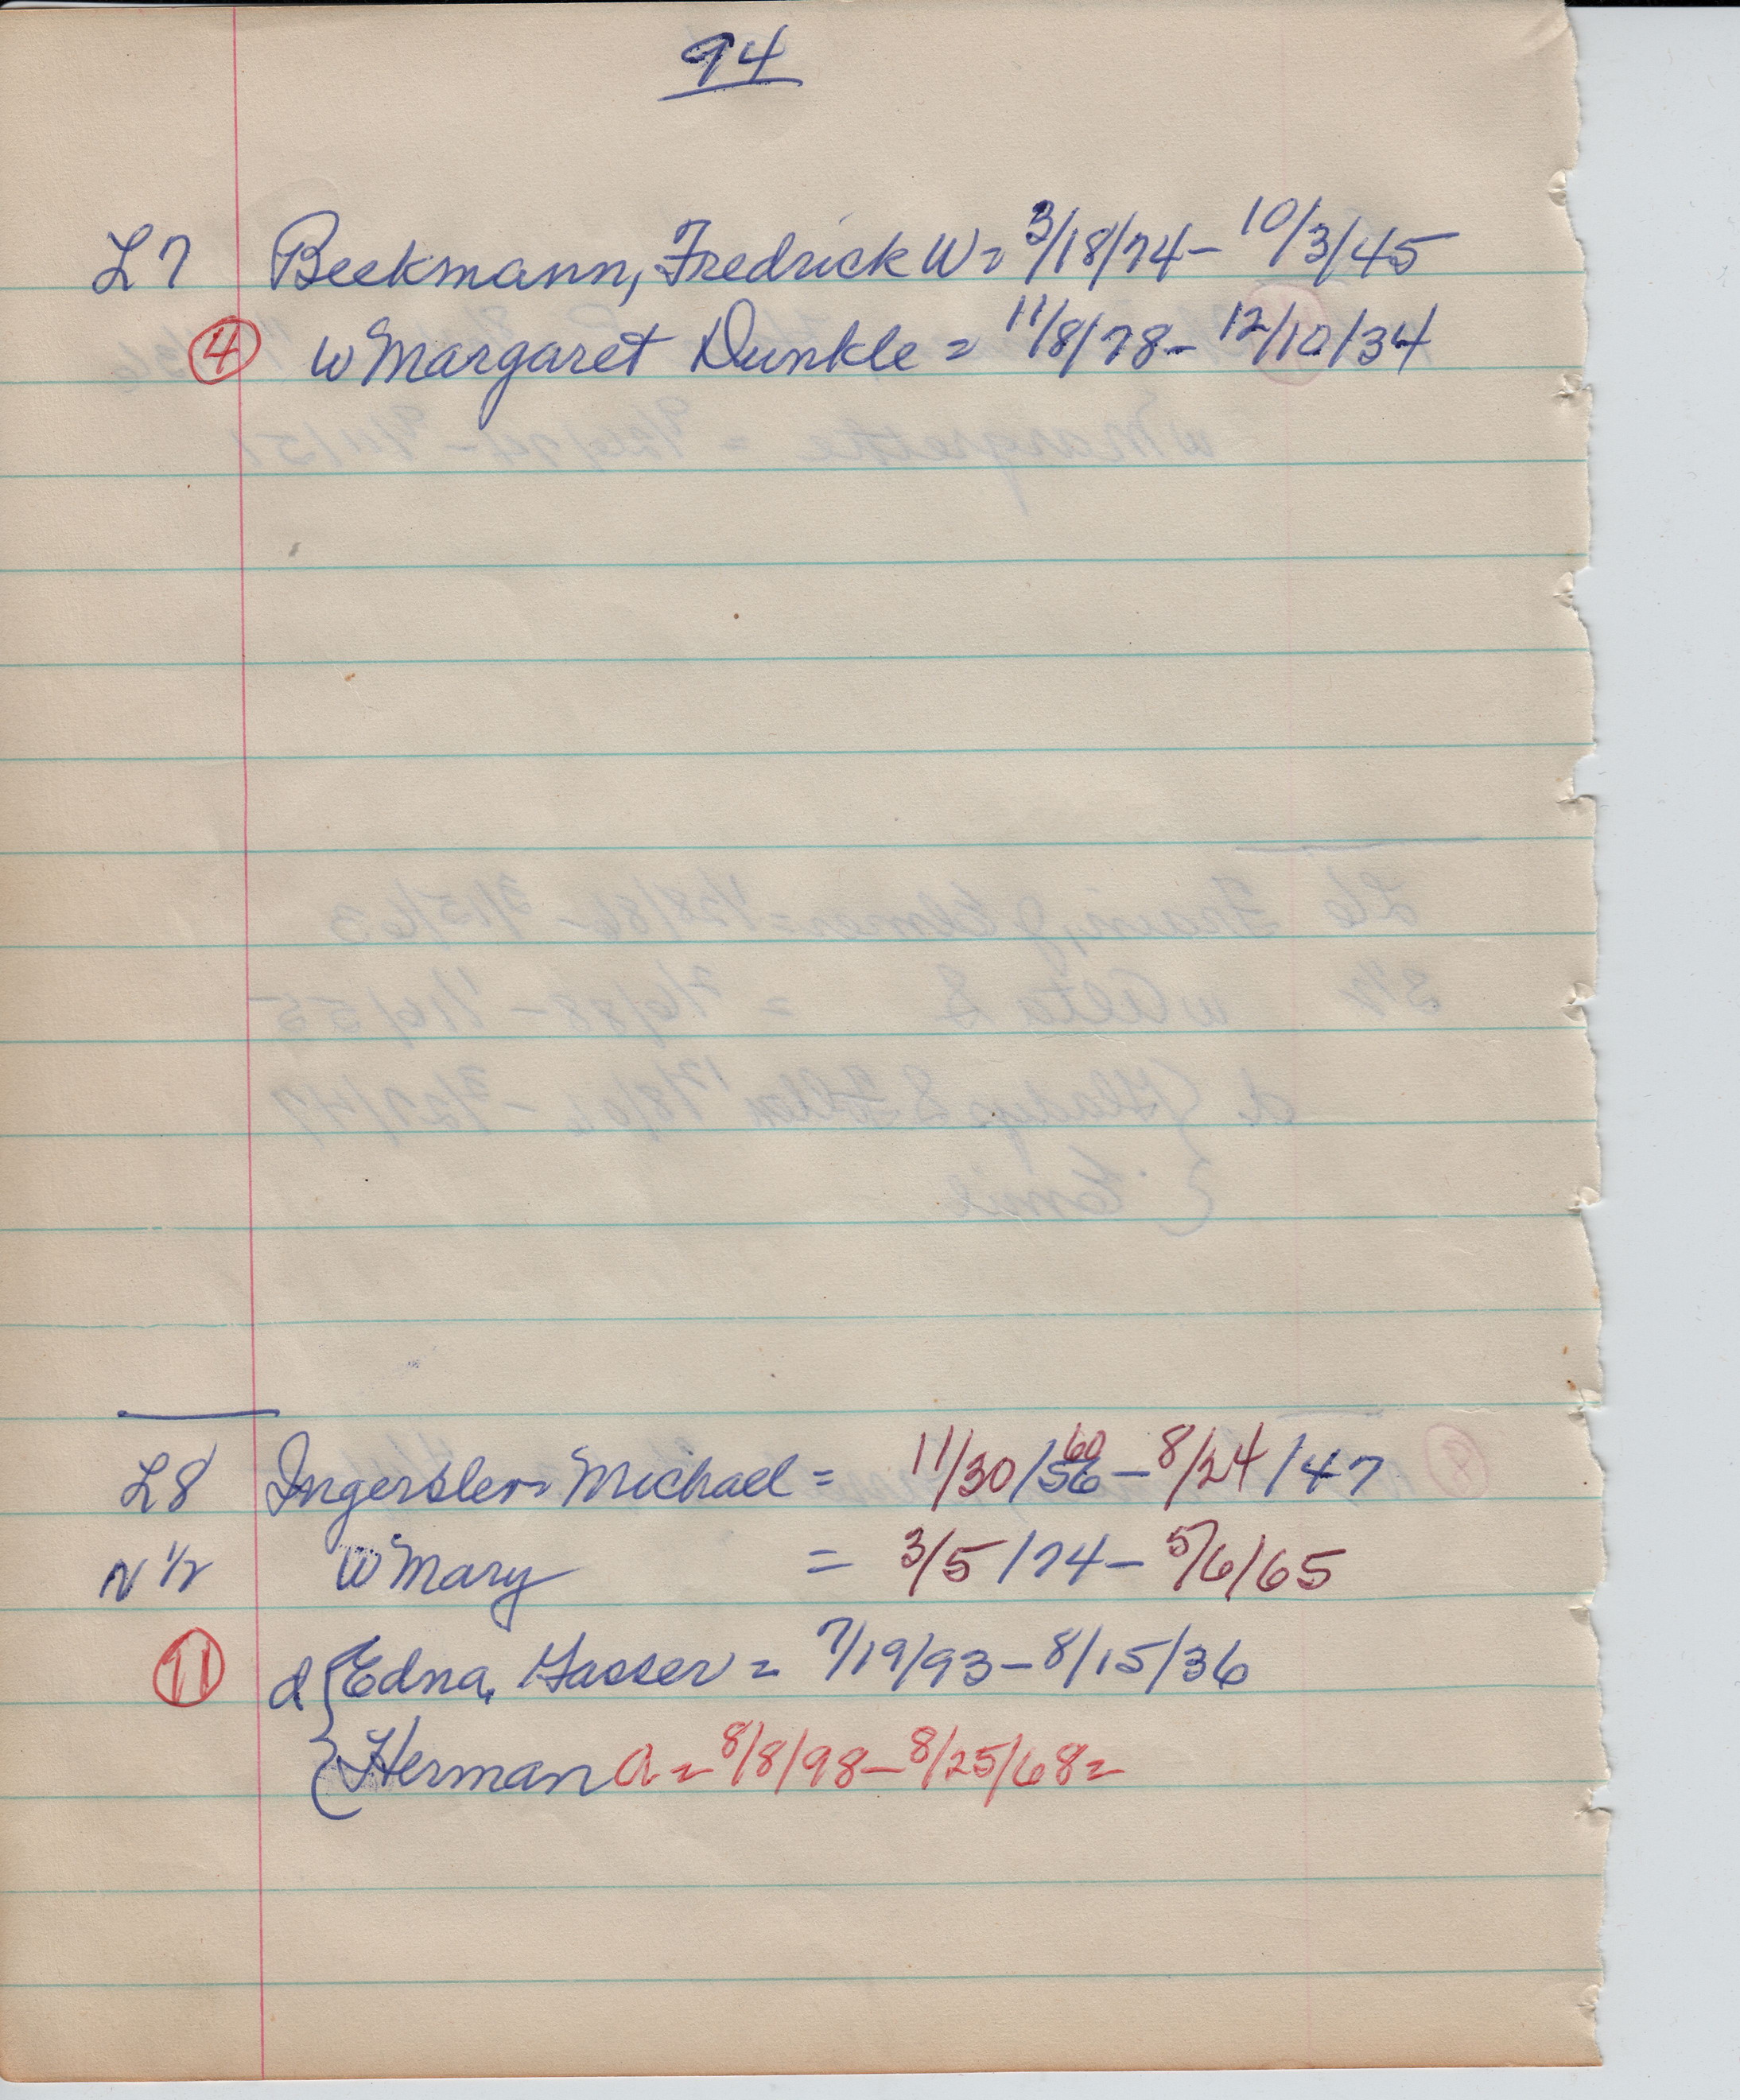 94
L7 Beekmann, Fredrick W = 3/18/74 - 10/3/45
4 w Margaret Dunkle = 11/8/78 - 12/10/34
L8 Michael = 11/30/56 60 - 8/24/47
N 1/2 w Mary = 3/5/74 - 5/6/65
11 d { Edna, Gasser = 7/19/93 - 8/15/36
{ Herman A = 8/8/98 - 8/25/68 =